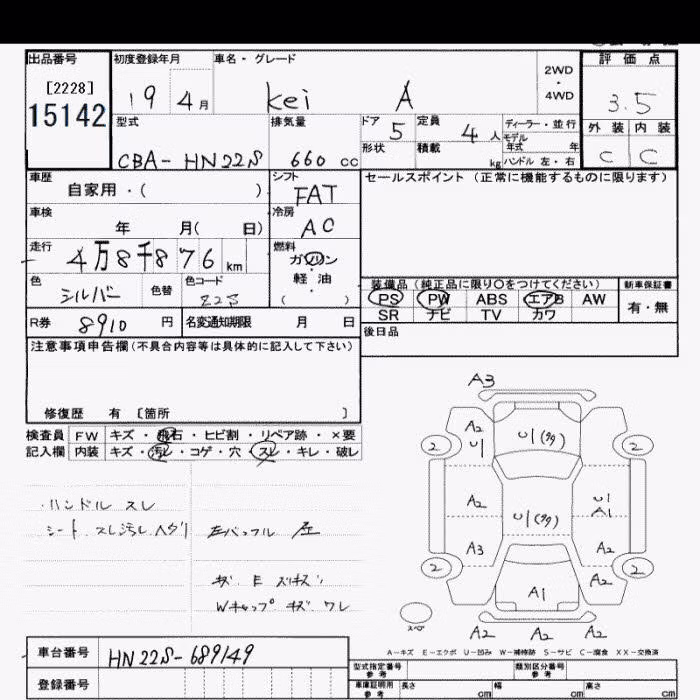 出品番号 初度登録年月 車名・グレード 2WD・4WD 評価点
[2228]
15142
19 4月 Kei A 3.5
型式 排気量 ドア 5 定員 4人 ディーラー・並行 外装 内装
モデル年式 年
CBA-HN22S 660cc 形状 積載 kg ハンドル 左・右 C C
車歴 シフト セールスポイント(正常に機能するものに限ります)
自家用・( ) FAT
車検 冷房
年 月( 日) AC
走行 燃料
4万8千876km ガソリン
・
軽油
色 色替 色コード 装備品(純正品に限り○をつけてください) 新車保証書
シルバー Z2S ( ) PS PW ABS エアB AW 有・無
R券 8910円 名変通知期限 月 日 SR ナビ TV カワ
後日品
注意事項申告欄(不具合内容等は具体的に記入して下さい)
修復歴 有 [箇所 ]
検査員 FW キズ・飛石・ヒビ割・リペア跡・×要
記入欄 内装 キズ・汚レ・コゲ・穴・スレ・キレ・破レ
・ハンドル スレ
シート スレ汚レヘタリ
Wキャップ キズ ワレ
A3
A2 U1
U1
2 2
A2 U1 A1
U1
A3 A2
2 2
A2
A1
A2 A2 A2
A-キズ E-エクボ U-凹み W-補修跡 S-サビ C-腐食 XX-交換済
車台番号 HN22S-689149
登録番号
型式指定番号 参考 類別区分番号 参考
車庫証明用 参考 長さ cm 幅 cm 高さ cm